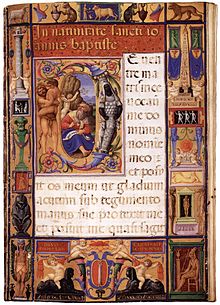 In natiuitate sancti io
annis baptiste
E uen
tre ma
tris mee
uocauit
me do
minus
nomine
meo
et posu
it os meum ut gladium
acutum sub tegumento
manus sue protexit
me posuit me quasi sagit